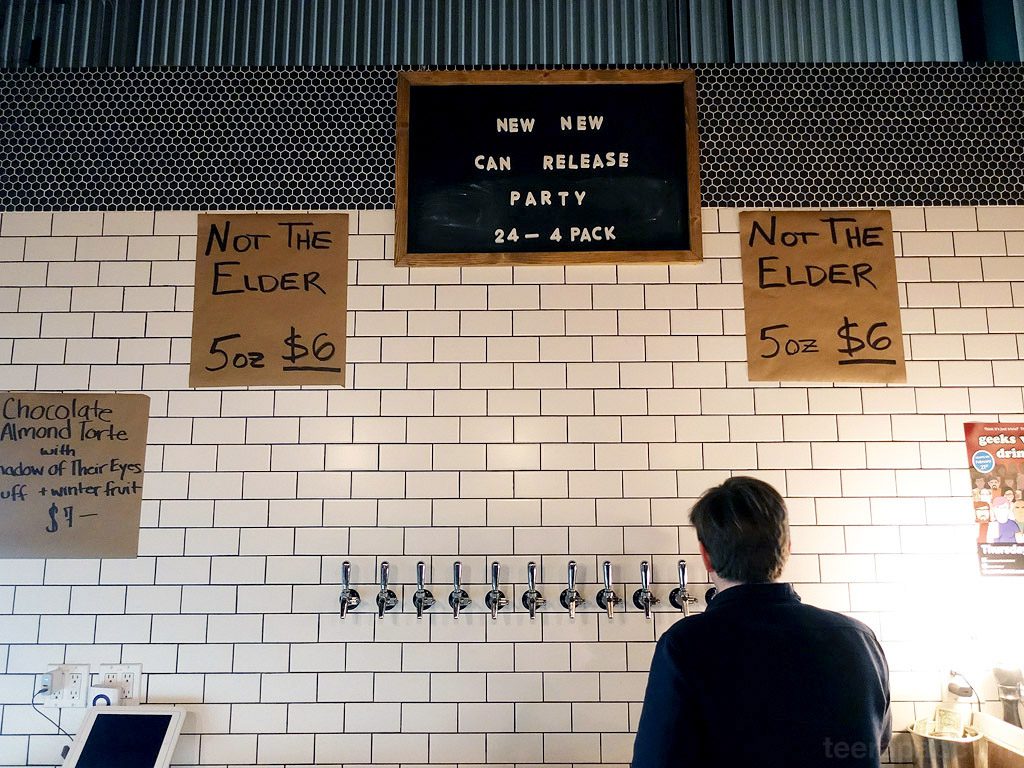 NEW NEW
CAN RELEASE
PARTY
24 - 4 PACK
NOT THE
ELDER
5oz $6
NOT THE
ELDER
5oz $6
Chocolate
Almond Torte
with
of Their Eyes
+ winter fruit
$7 —
geeks
Thursday